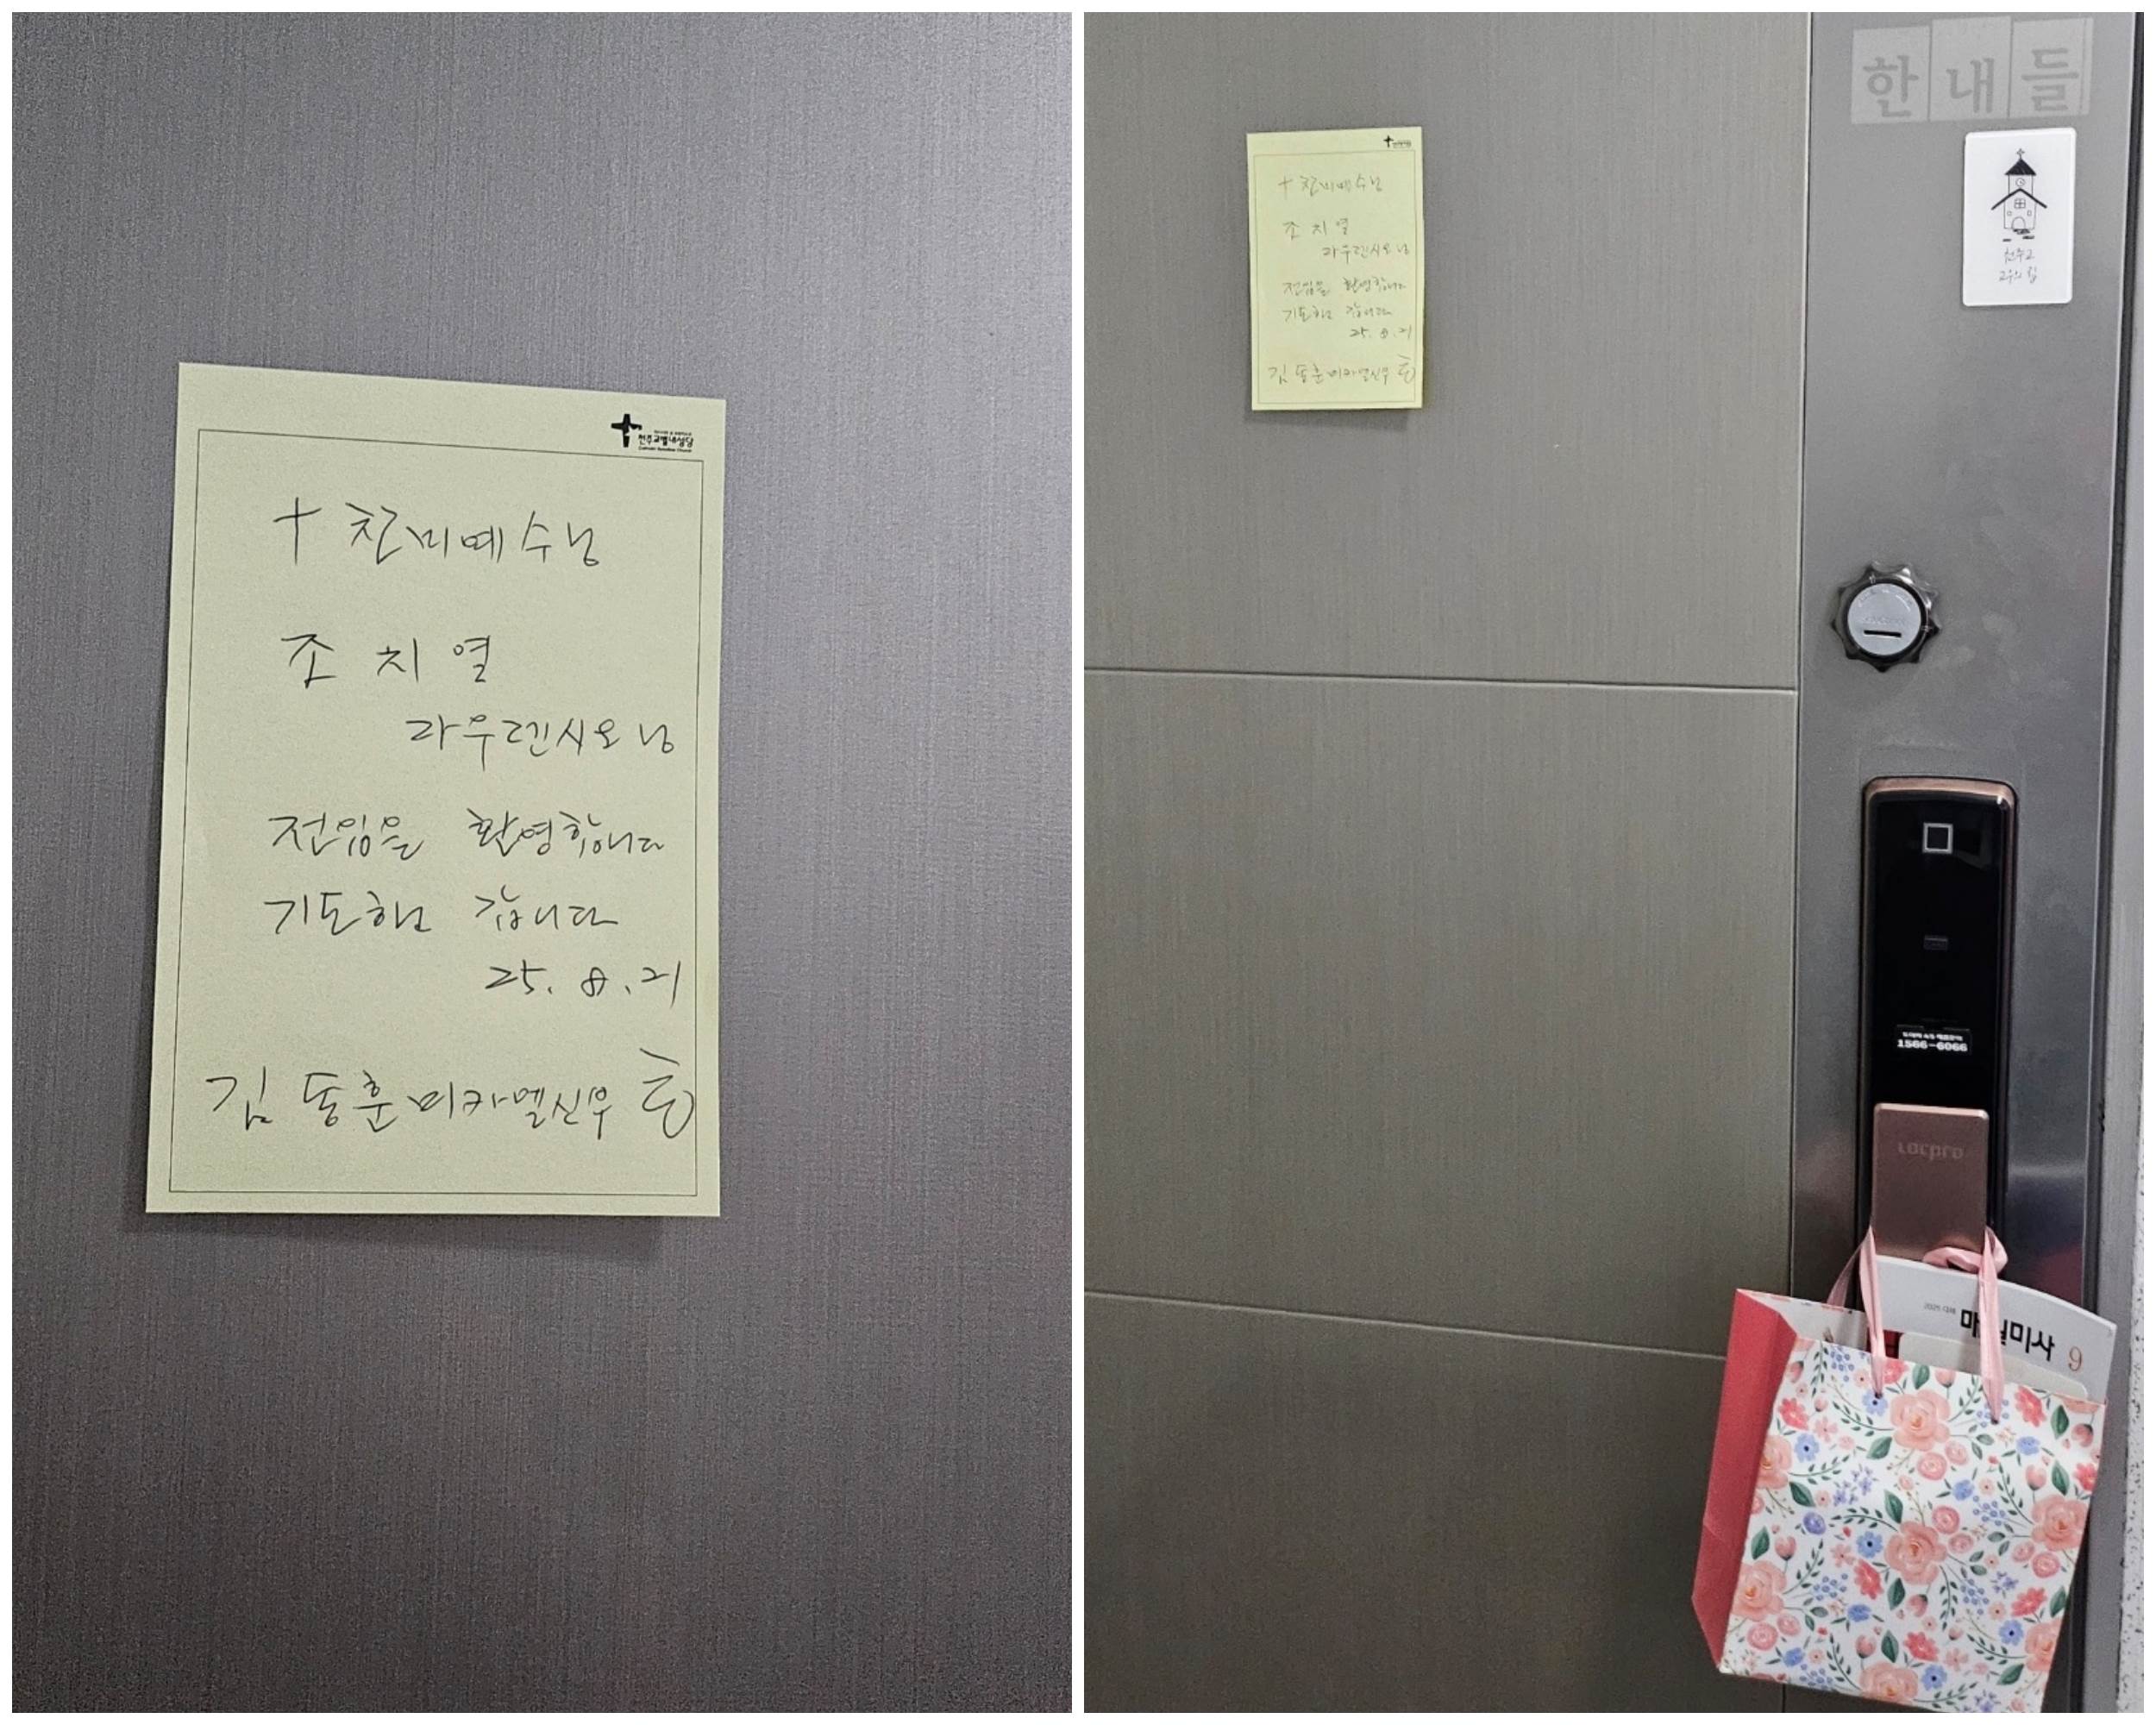 천주교별내성당
+ 찬미예수님
조치열
라우렌시오님
전입을 환영합니다
기도하고 갑니다
25. 8. 21
김동훈미카엘신부
한내들
+ 찬미예수님
조치열
라우렌시오님
전입을 환영합니다
기도하고 갑니다
25. 8. 21
김동훈미카엘신부
천주교
교우의 집
1566-6066
Locpro
매일미사 9